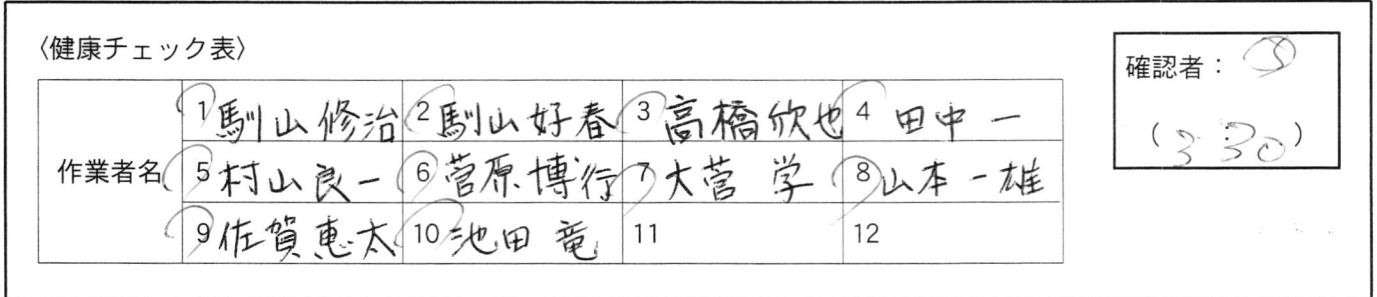 〈健康チェック表〉
確認者：
(3:30)
作業者名
1 馴山修治 2 馴山好春 3 高橋欣也 4 田中一
5 村山良一 6 菅原博行 7 大菅 学 8 山本一雄
9 佐賀恵太 10 池田 竜 11 12